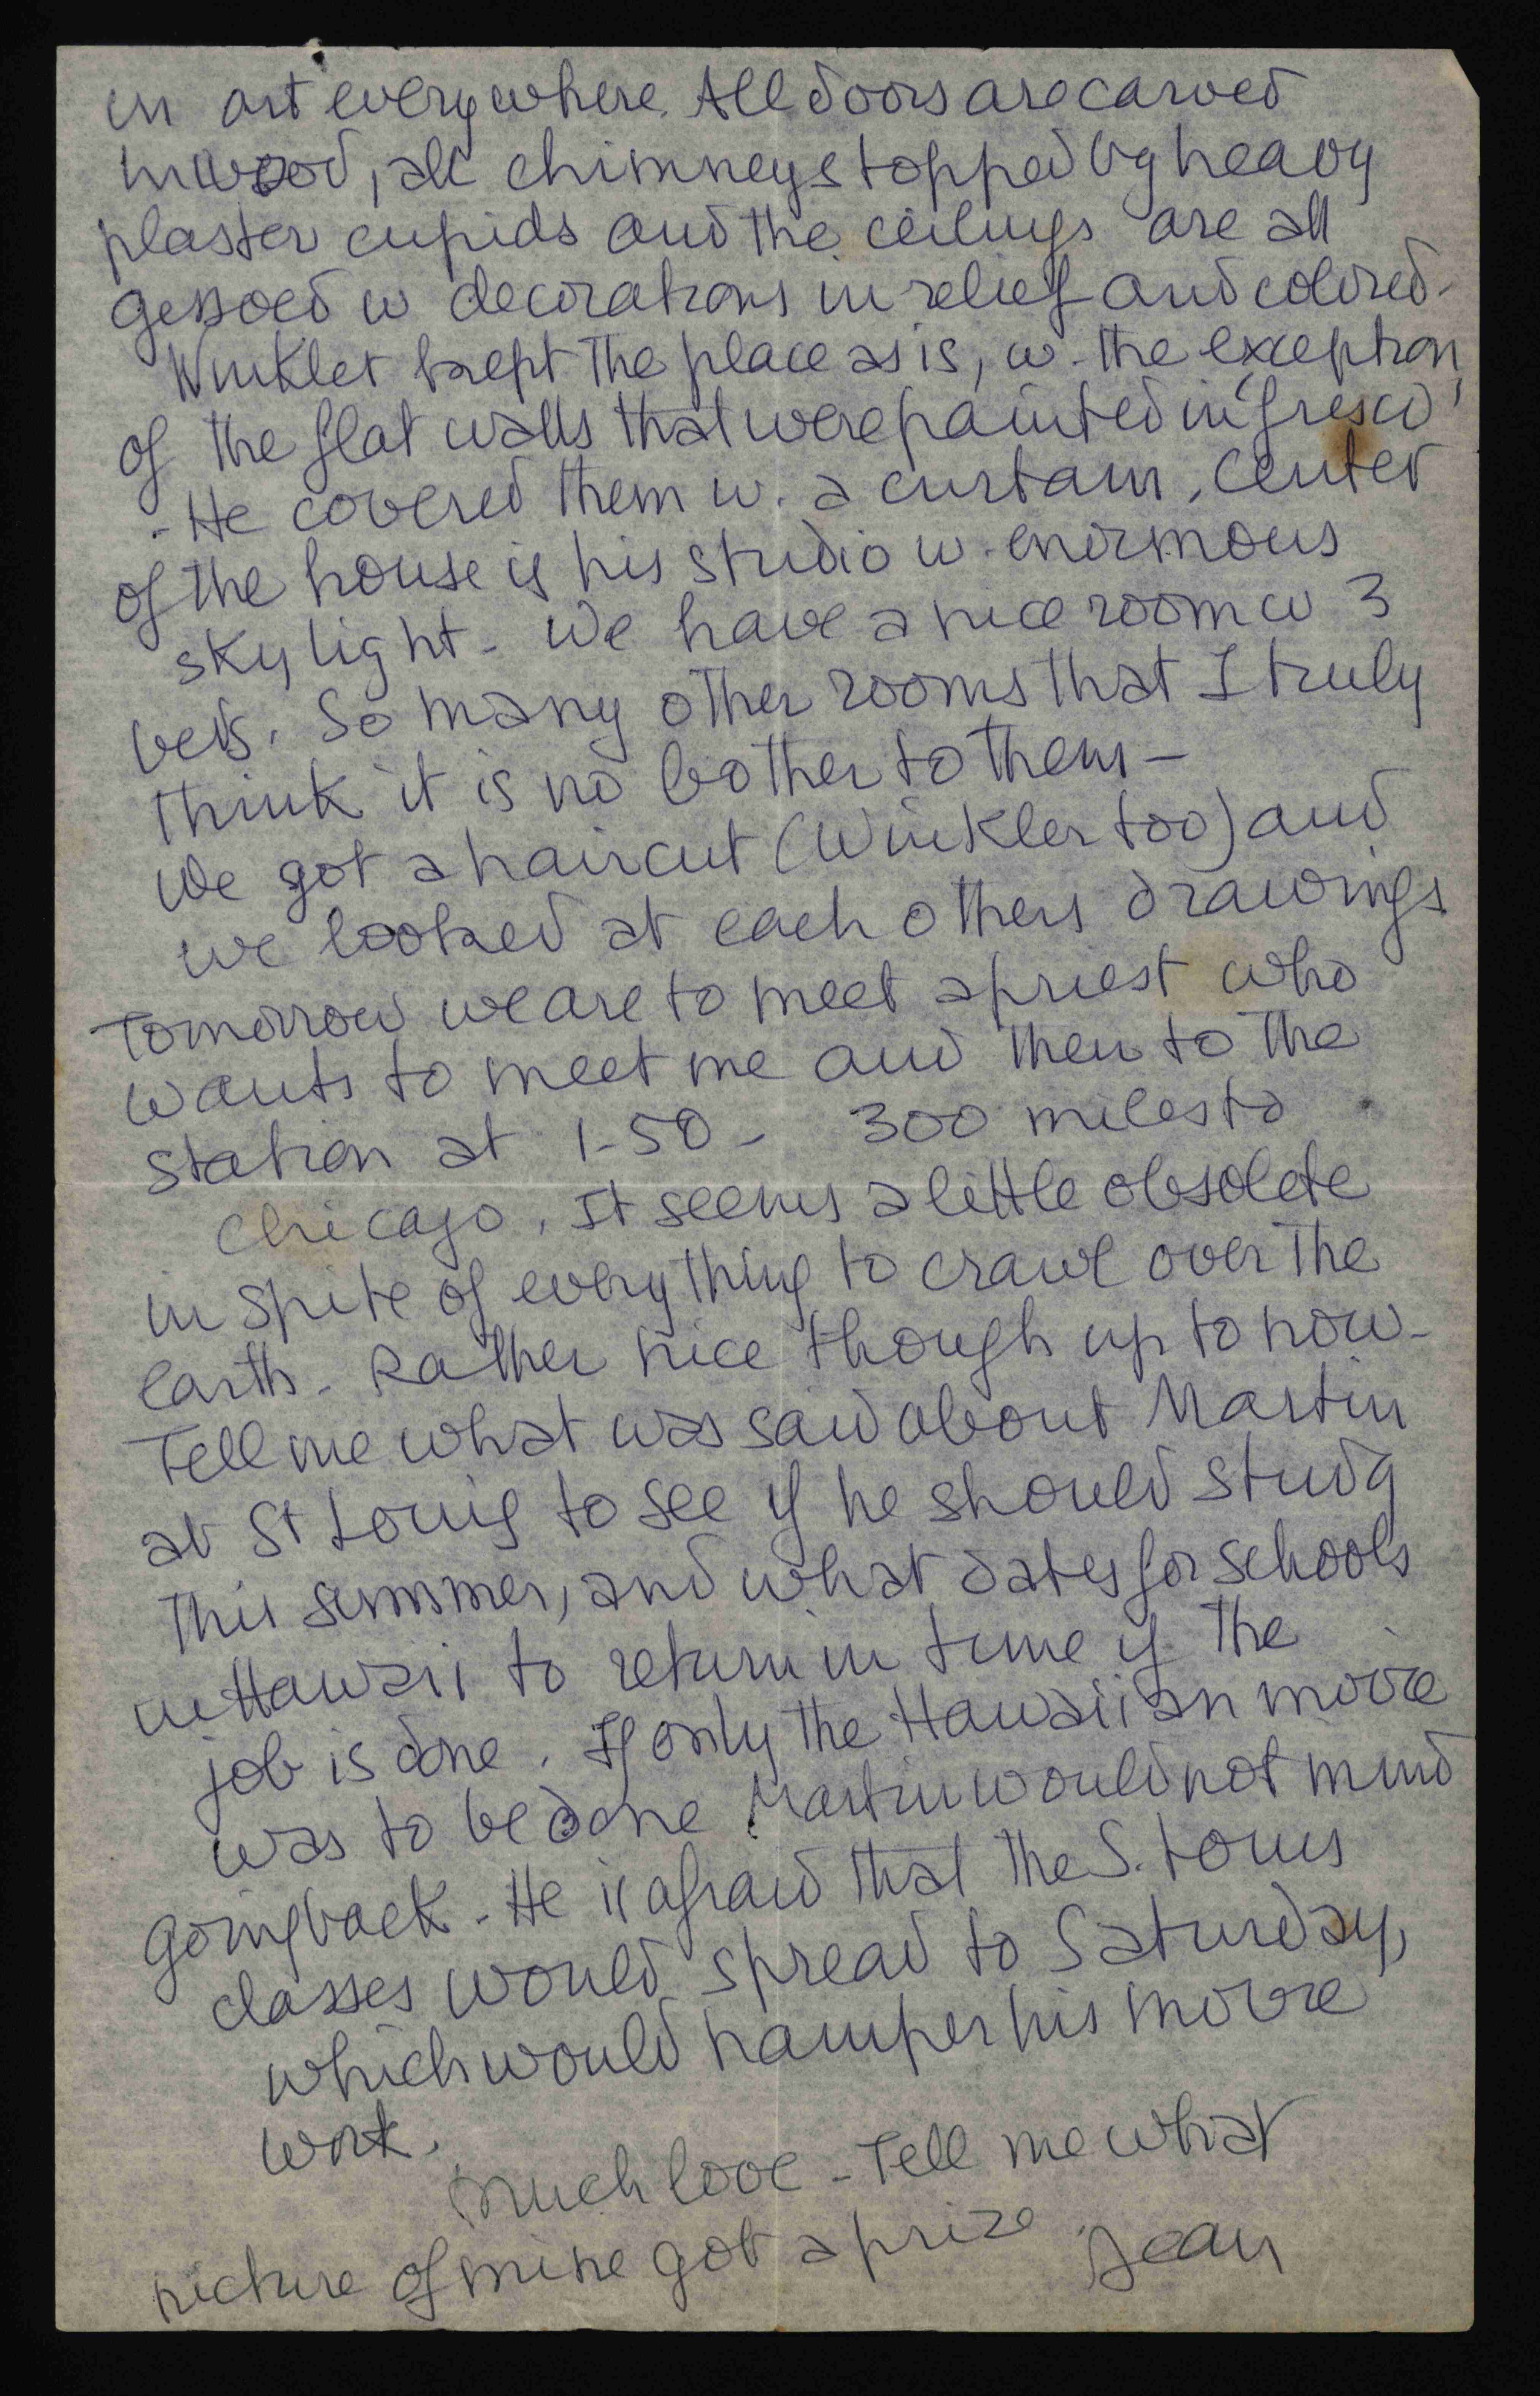 in art everywhere. All doors are carved
in wood, all chimneys topped by heavy
plaster cupids and the ceilings are all
gessoed w decorations in relief and colored.
Winkler kept the place as is, w. the exception
of the flat walls that were painted in 'fresco'
- He covered them w. a curtain. Center
of the house is his studio w. enormous
skylight. We have a nice room w 3
beds. So many other rooms that I truly
think it is no bother to them -
We got a haircut (Winkler too) and
we looked at each others drawings
Tomorrow we are to meet a priest who
wants to meet me and then to the
station at 1-50 - 300 miles to
Chicago. It seems a little obsolete
in spite of everything to crawl over the
earth. Rather nice though up to now -
Tell me what was said about Martin
at St Louis to see if he should study
this summer, and what dates for schools
in Hawaii to return in time if the
job is done. If only the Hawaiian movie
was to be done Martin would not mind
going back. He is afraid that the S. Louis
classes would spread to Saturday,
which would hamper his movie
work.
Much love - Tell me what
picture of mine got a prize
Jean